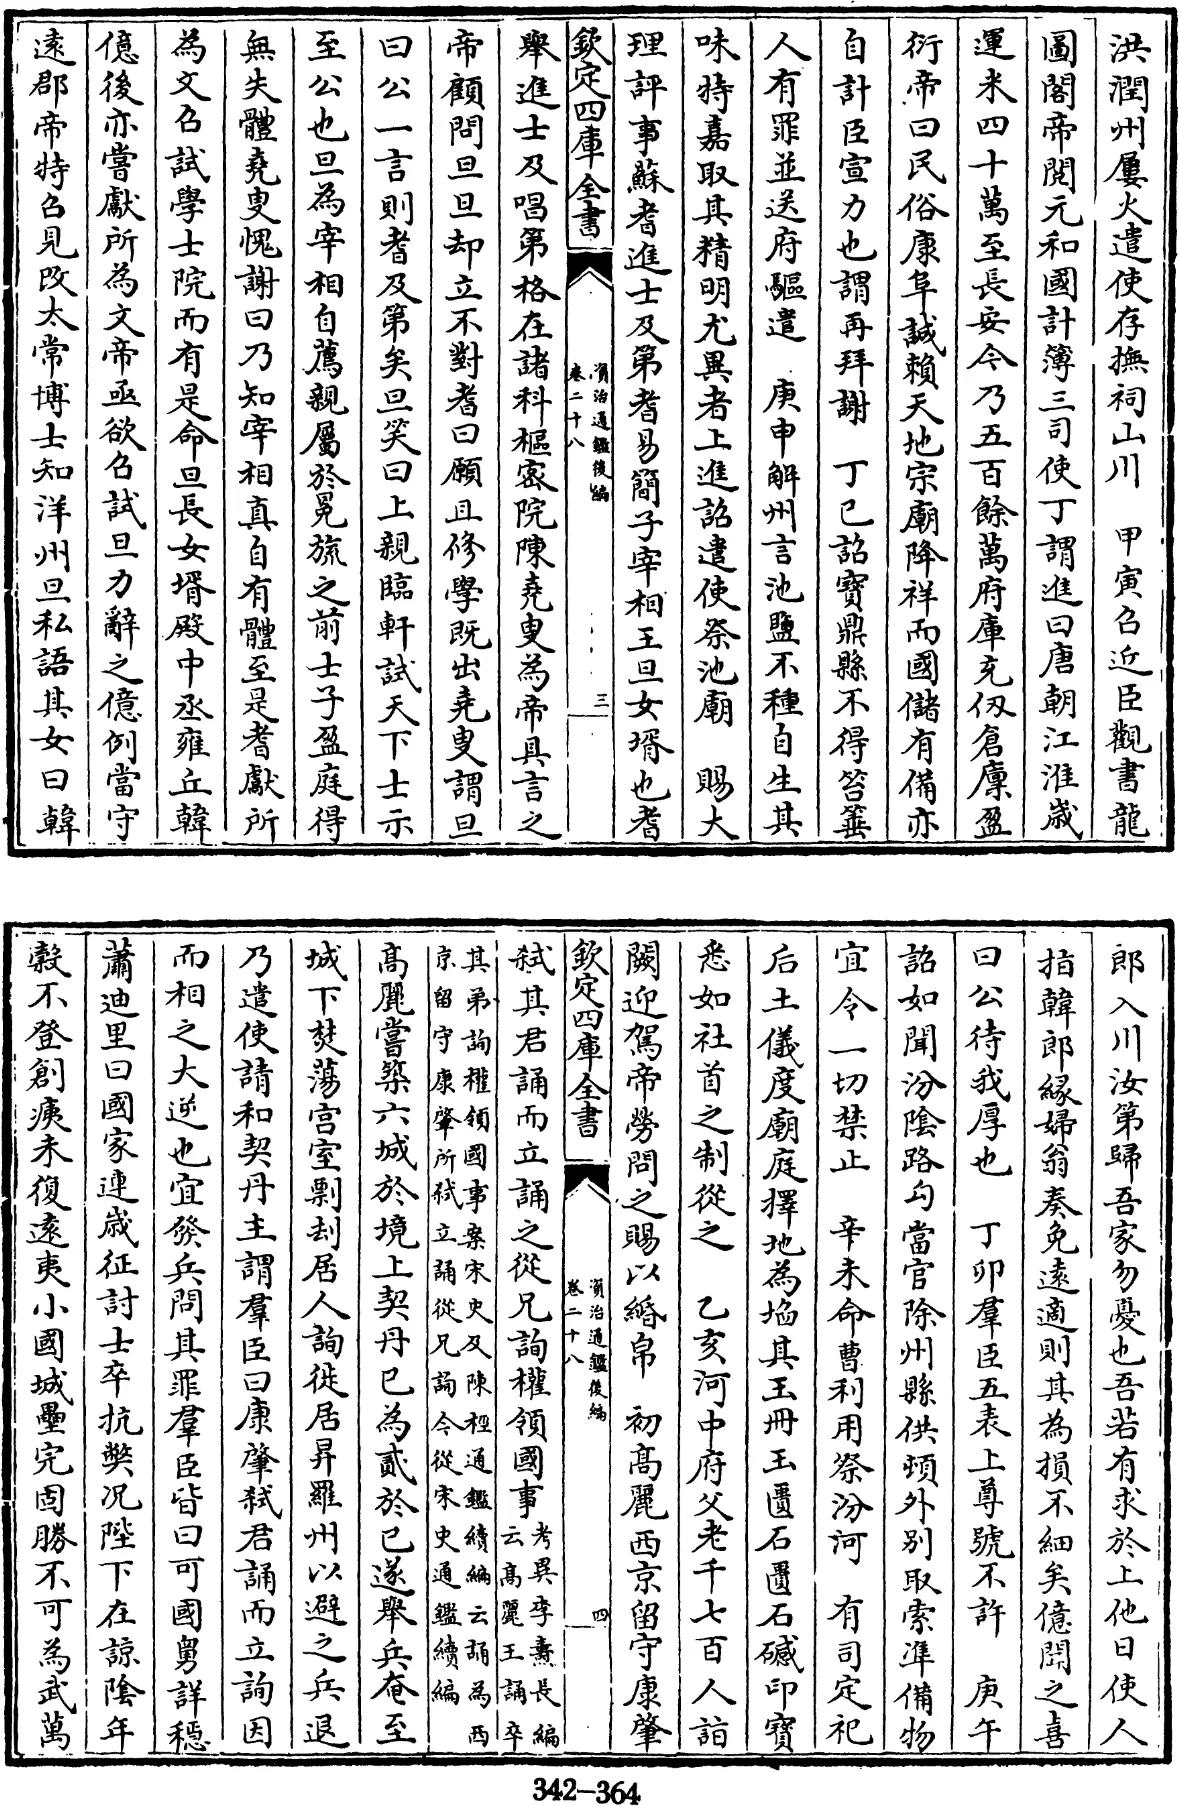 洪潤州屢火遣使存撫祠山川　甲寅召近臣觀書龍
圖閣帝閱元和國計簿三司使丁謂進曰唐朝江淮歲
運米四十萬至長安今乃五百餘萬府庫充仞倉廩盈
衍帝曰民俗康阜誠賴天地宗廟降祥而國儲有備亦
自計臣宣力也謂再拜謝　丁巳詔寶鼎縣不得笞箠
人有罪並送府驅遣　庚申解州言池鹽不種自生其
味特嘉取其精明尤異者上進詔遣使祭池廟　賜大
理評事蘇耆進士及第耆易簡子宰相王旦女壻也耆
欽定四庫全書
資治通鑑後編
卷二十八
三
舉進士及唱第格在諸科樞密院陳堯叟為帝具言之
帝顧問旦旦却立不對耆曰願且修學既出堯叟謂旦
曰公一言則耆及第矣旦笑曰上親臨軒試天下士示
至公也旦為宰相自薦親屬於冕旒之前士子盈庭得
無失體堯叟愧謝曰乃知宰相真自有體至是耆獻所
為文召試學士院而有是命旦長女壻殿中丞雍丘韓
億後亦嘗獻所為文帝亟欲召試旦力辭之億例當守
遠郡帝特召見改太常博士知洋州旦私語其女曰韓
郎入川汝第歸吾家勿憂也吾若有求於上他日使人
指韓郎緣婦翁奏免遠適則其為損不細矣億聞之喜
曰公待我厚也　丁卯羣臣五表上尊號不許　庚午
詔如聞汾陰路勾當官除州縣供頓外別取索準備物
宜令一切禁止　辛未命曹利用祭汾河　有司定祀
后土儀度廟庭擇地為埳其玉冊玉匱石匱石䃭印寶
悉如社首之制從之　乙亥河中府父老千七百人詣
闕迎駕帝勞問之賜以緡帛　初高麗西京留守康肇
欽定四庫全書
資治通鑑後編
卷二十八
四
弑其君誦而立誦之從兄詢權領國事考異李燾長編
云高麗王誦卒
其弟詢權領國事案宋史及陳桱通鑑續編云誦為西
京留守康肇所弑立誦從兄詢今從宋史通鑑續編
高麗嘗築六城於境上契丹巳為貳於己遂舉兵奄至
城下焚蕩宮室剽刦居人詢徙居昇羅州以避之兵退
乃遣使請和契丹主謂羣臣曰康肇弑君誦而立詢因
而相之大逆也宜發兵問其罪羣臣皆曰可國舅詳穩
蕭迪里曰國家連歲征討士卒抗獘况陛下在諒陰年
穀不登創痍未復遠夷小國城壘完固勝不可為武萬
342-364